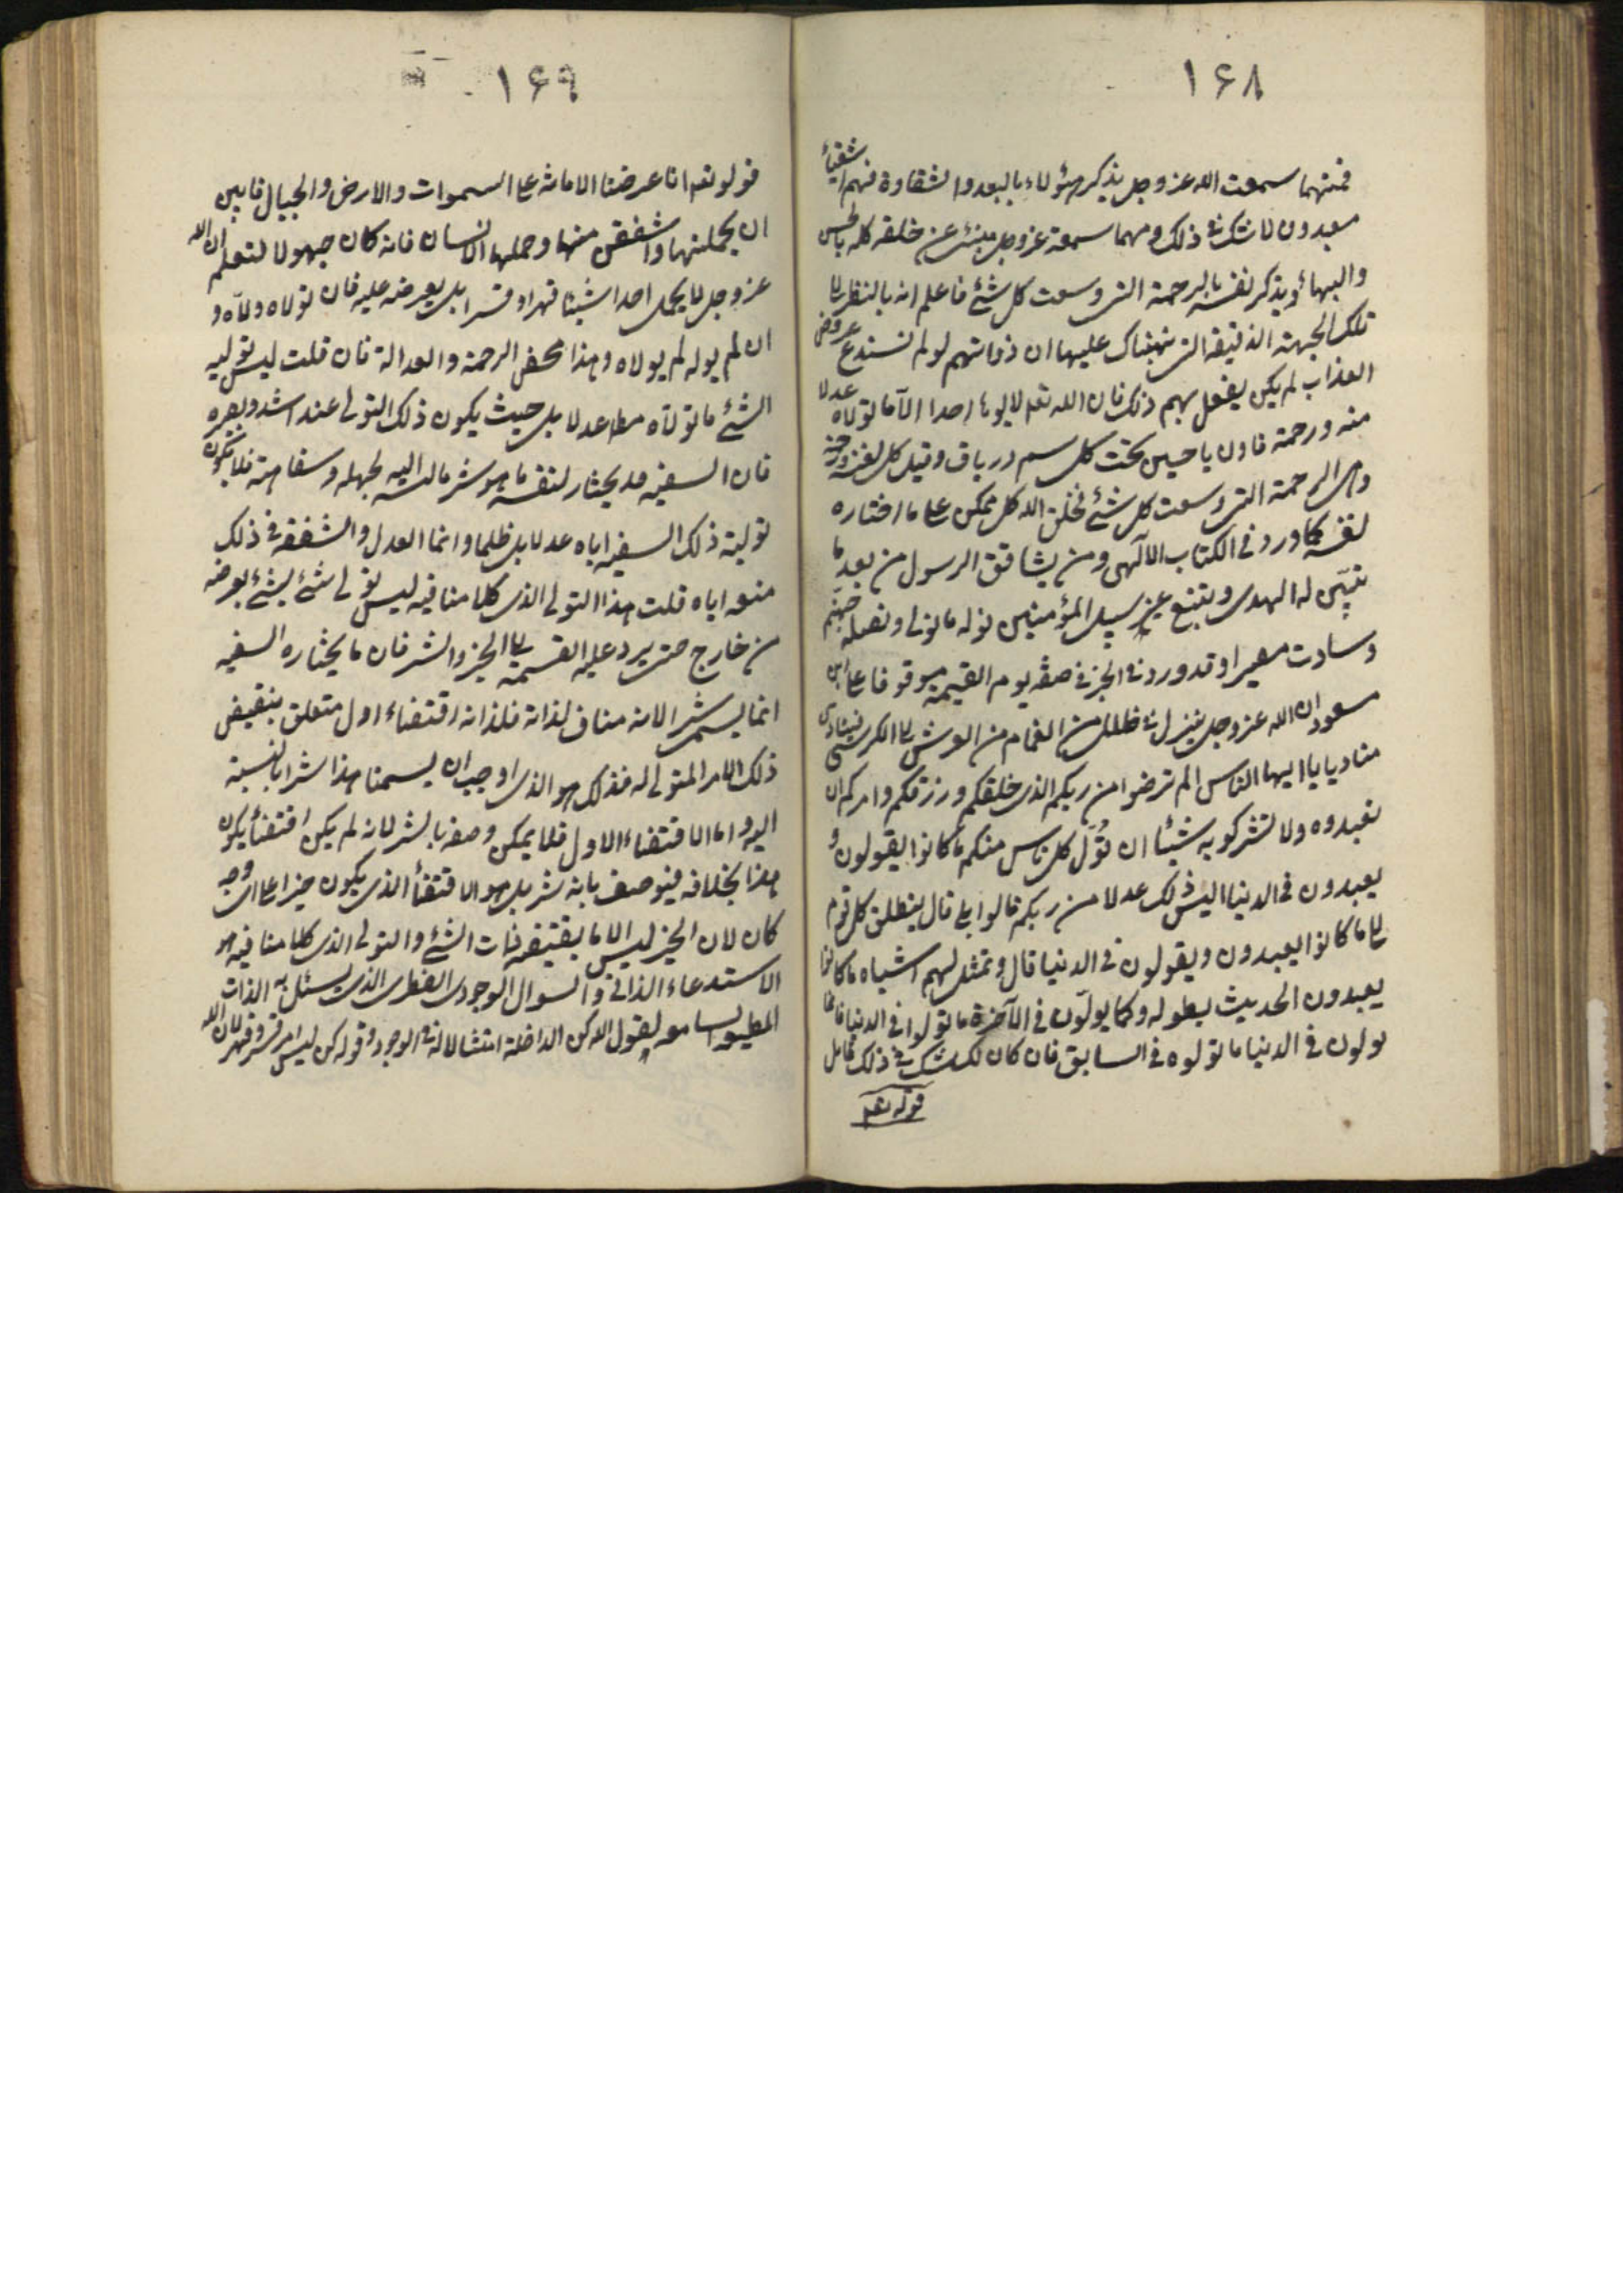 ۱۶۸
فمتهما سمعت الله عز وجل يذكر هؤلاء بالبعد والشقاوة فهم اشقياء
مبعدون لا شك فى ذلك ومهما سمعته عز وجل ينبئ عن خلقه كله بالحسن
والبهاء ويذكر نفسه بالرحمة التى وسعت كل شئ فاعلم انه بالنظر الى
تلك الجهة الدقيقة التى نبهناك عليها ان ذواتهم لو لم تستدع عروض
العذاب لم يكن يفعل بهم ذلك فان الله تعه لا يولى احدا الا ما تولاه عدلا
منه ورحمة فاذن يا حسين تحت كل سم درياق وقبل كل لعنة رحمة
وهى الرحمة التى وسعت كل شئ فخلق الله كل ممكن على ما اختاره
لنفسه كما ورد فى الكتاب الالهى ومن يشاقق الرسول من بعد ما
تبين له الهدى ويتبع غير سبيل المؤمنين نوله ما تولى ونصله جهنم
وساءت مصيرا وقد ورد فى الخبر فى صفة يوم القيمة موقوفا على ابن
مسعود ان الله عز وجل ينزل فى ظلل من الغمام من العرش الى الكرسى فينادى
مناد يا ايها الناس الم ترضوا من ربكم الذى خلقكم ورزقكم وامركم ان
تعبدوه ولا تشركو به شيئا ان نُوَلّ كل ناس منكم ما كانوا يقولون و
يعبدون فى الدنيا اليس ذلك عدلا من ربكم قالوا بلى قال ينطلق كل قوم
الى ما كانوا يعبدون ويقولون فى الدنيا قال وتمثل لهم اشياه ما كانوا
يعبدون الحديث بطوله وكما يولّون فى الآخرة ما تولوا فى الدنيا فانما
يولون فى الدنيا ما تولوه فى السابق فان كان لك شك فى ذلك فتامل
قوله تعه
۱۶۹
قوله تعه انا عرضنا الامانة على السموات والارض والجبال فابين
ان يحملنها واشفقن منها وحملها الانسان فانه كان جهولا لتعلم ان الله
عز وجل لا يحمل احدا شيئا قهرا وقسرا بل يعرضه عليه فان تولاه ولاه و
ان لم يوله لم يولاه وهذا محض الرحمة والعدالة فان قلت ليس تولية
الشئ ما تولاه مطا عدلا بل حيث يكون ذلك التولى عند رشد وبصره
فان السفيه قد يختار لنفسه ما هو شر مالنسبة اليه لجهله وسفاهته فلا يكون
تولية ذلك السفيه اياه عدلا بل ظلما وانما العدل والشفقة فى ذلك
منعه اياه قلت هذا التولى الذى كلامنا فيه ليس تولى شئ بشئ يعرضه
من خارج حتى يرد عليه القسمة الى الخير والشر فان ما يختاره السفيه
انما يسمى شرا لانه مناف لذاته فلذاته اقتضاء اول متعلق بنقيض
ذلك الامر المتولى له فذلك هو الذى اوجب ان يسمنا هذا شرا بالنسبة
اليه واما الاقتضاء الاول فلا يمكن وصفه بالشر لانه لم يكن اقتضأ يكون
هذا بخلافه فيوصف بانه شر بل هو الاقتضأ الذى يكون خيرا على اى وجه
كان لان الخير ليس الا ما يقتضيه ذات الشئ والتولى الذى كلامنا فيه هو
الاستدعاء الذاتى والسوال الوجودى الفطرى الذى يسئل به الذات
المطيعة السامعة لقول الله كن الداخلة امتثالا له فى الوجود وقوله كن ليس امر قسر وقهر لان الله